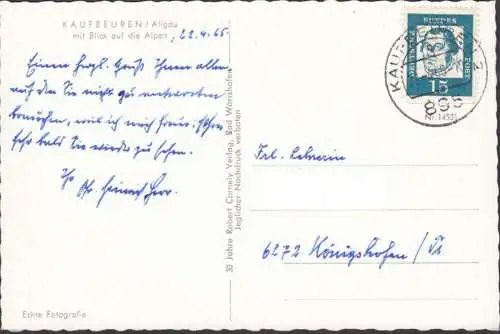 KAUFBEUREN/Allgäu
mit Blick auf die Alpen
22.4.65
Einen herzl. Gruß Ihnen allen,
auf den Sie nicht zu antworten
brauchen, weil ich mich freue,
Sie wieder zu sehen.
Ihr
Heinrich Herr.
Echte Fotografie
30 Jahre Robert Cornely Verlag, Bad Wörishofen
Jeglicher Nachdruck verboten
DEUTSCHE
BUNDES
POST
15
KAUFBEUREN 2
895
Nr. 14521
Frl. Lehrerin
6272 Königshofen / Ts